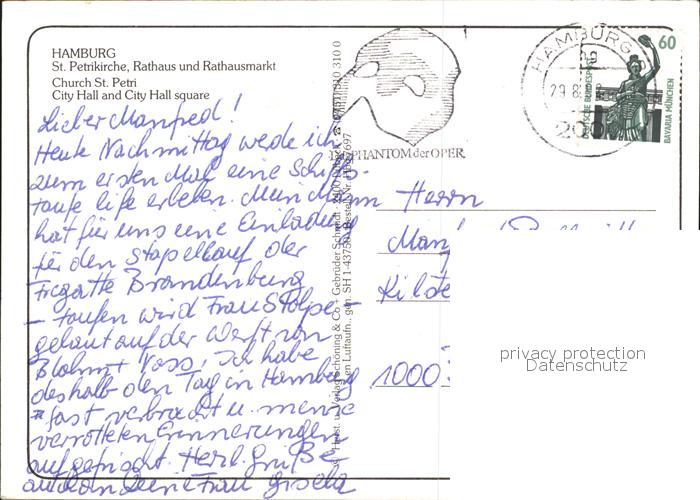 HAMBURG
St. Petrikirche, Rathaus und Rathausmarkt
Church St. Petri
City Hall and City Hall square
Lieber Manfred!
Heute Nachmittag werde ich
zum ersten Mal eine Schiffs-
taufe life erleben. Mein Mann
hat für uns eine Einladung
für den Stapellauf der
Fregatte Brandenburg
– taufen wird Frau Stolpe –
gelaut auf der Werft von
Blohm + Voss. Ich habe
deshalb den Tag in Hamburg
fast verbracht u. meine
verrotteten Erinnerungen
aufgefrischt. Herzl. Grüße
auch an Deine Frau Gisela
Verlag Schöning & Co + Gebrüder Schmidt
HAMBURG
29.8.
DAS PHANTOM der OPER
60
DEUTSCHE BUNDESPOST
BAVARIA MÜNCHEN
Herrn
Man
Kilde
1000
privacy protection
Datenschutz